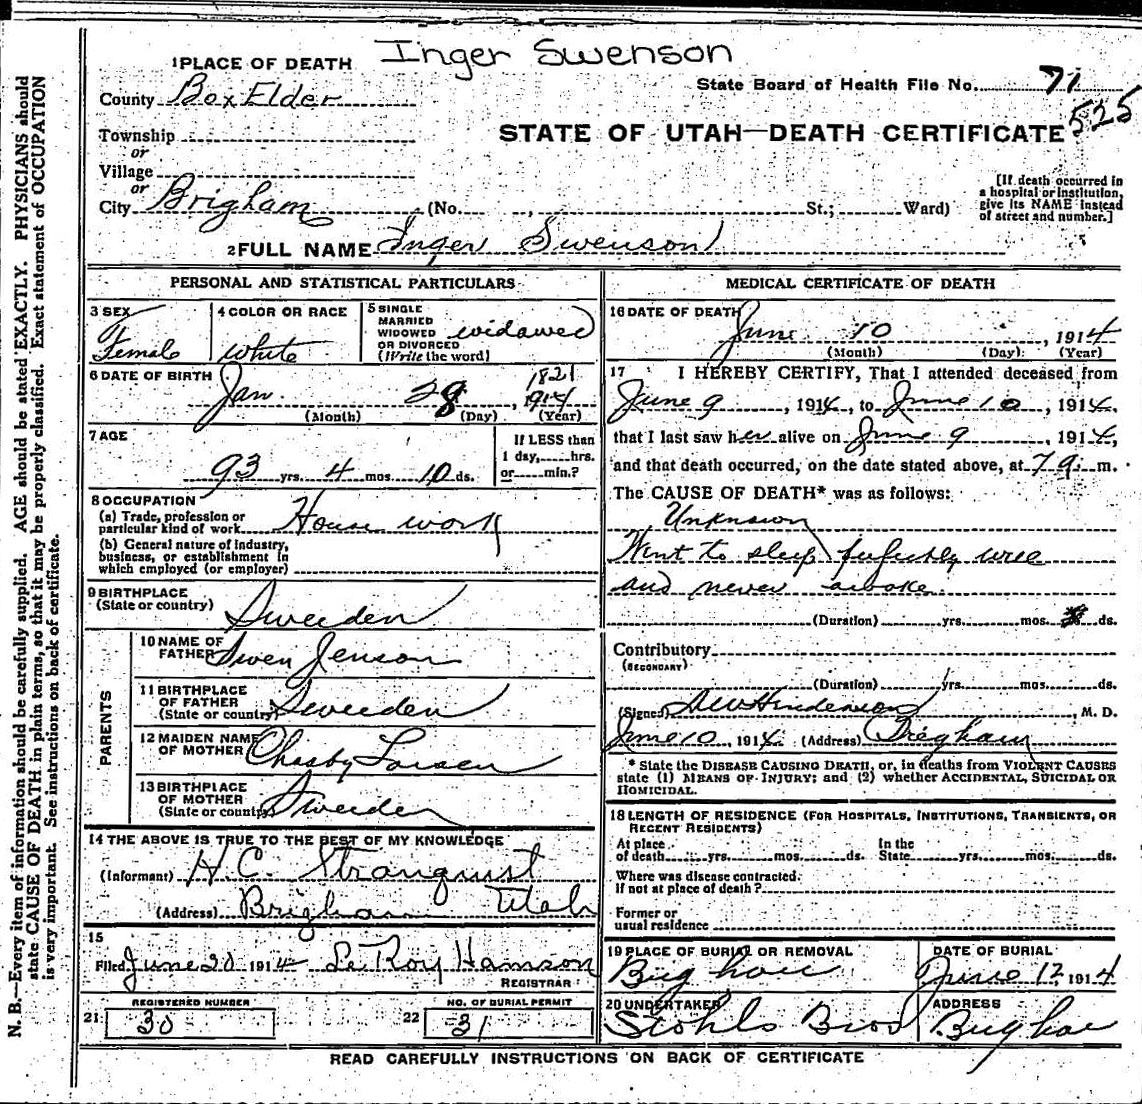 Inger Swenson
1 PLACE OF DEATH
State Board of Health File No. 71
County Box Elder
525
STATE OF UTAH—DEATH CERTIFICATE
Township
or
Village
or
City Brigham (No. , St.; Ward)
[If death occurred in
a hospital or institution,
give its NAME instead
of street and number.]
2 FULL NAME Inger Swenson
PERSONAL AND STATISTICAL PARTICULARS
3 SEX
Female
4 COLOR OR RACE
white
5 SINGLE
MARRIED
WIDOWED
OR DIVORCED
(Write the word)
widawed
6 DATE OF BIRTH
Jan. 28, 1914
1821
(Month) (Day) (Year)
7 AGE
93 yrs. 4 mos. 10 ds.
If LESS than
1 day, hrs.
or min.?
8 OCCUPATION
(a) Trade, profession or
particular kind of work House work
(b) General nature of industry,
business, or establishment in
which employed (or employer)
9 BIRTHPLACE
(State or country)
Sweeden
PARENTS
10 NAME OF
FATHER Swen Jenson
11 BIRTHPLACE
OF FATHER
(State or country) Sweeden
12 MAIDEN NAME
OF MOTHER Larsen
13 BIRTHPLACE
OF MOTHER
(State or country) Sweeden
14 THE ABOVE IS TRUE TO THE BEST OF MY KNOWLEDGE
(Informant) H.C. Stranquist
(Address) Brigham Utah
15
Filed June 20 1914 Le Roy Hamson
REGISTRAR
REGISTERED NUMBER
21 30
NO. OF BURIAL PERMIT
22 31
MEDICAL CERTIFICATE OF DEATH
16 DATE OF DEATH
June 10, 1914
(Month) (Day) (Year)
17 I HEREBY CERTIFY, That I attended deceased from
June 9, 1914, to June 10, 1914,
that I last saw her alive on June 9, 1914,
and that death occurred, on the date stated above, at 7 9 m.
The CAUSE OF DEATH* was as follows:
Unknown
Went to sleep perfectly well
and never awoke.
(Duration) yrs. mos. ds.
Contributory
(SECONDARY)
(Duration) yrs. mos. ds.
(Signed) Henderson, M. D.
June 10, 1914 (Address) Brigham
* State the DISEASE CAUSING DEATH, or, in deaths from VIOLENT CAUSES
state (1) MEANS OF INJURY; and (2) whether ACCIDENTAL, SUICIDAL OR
HOMICIDAL.
18 LENGTH OF RESIDENCE (FOR HOSPITALS, INSTITUTIONS, TRANSIENTS, OR
RECENT RESIDENTS)
At place
of death yrs. mos. ds. In the
State yrs. mos. ds.
Where was disease contracted.
If not at place of death?
Former or
usual residence
19 PLACE OF BURIAL OR REMOVAL
Brigham
DATE OF BURIAL
June 12, 1914
20 UNDERTAKER
Stohls Bros
ADDRESS
Brigham
READ CAREFULLY INSTRUCTIONS ON BACK OF CERTIFICATE
N. B.—Every item of information should be carefully supplied. AGE should be stated EXACTLY. PHYSICIANS should
state CAUSE OF DEATH in plain terms, so that it may be properly classified. Exact statement of OCCUPATION
is very important. See instructions on back of certificate.